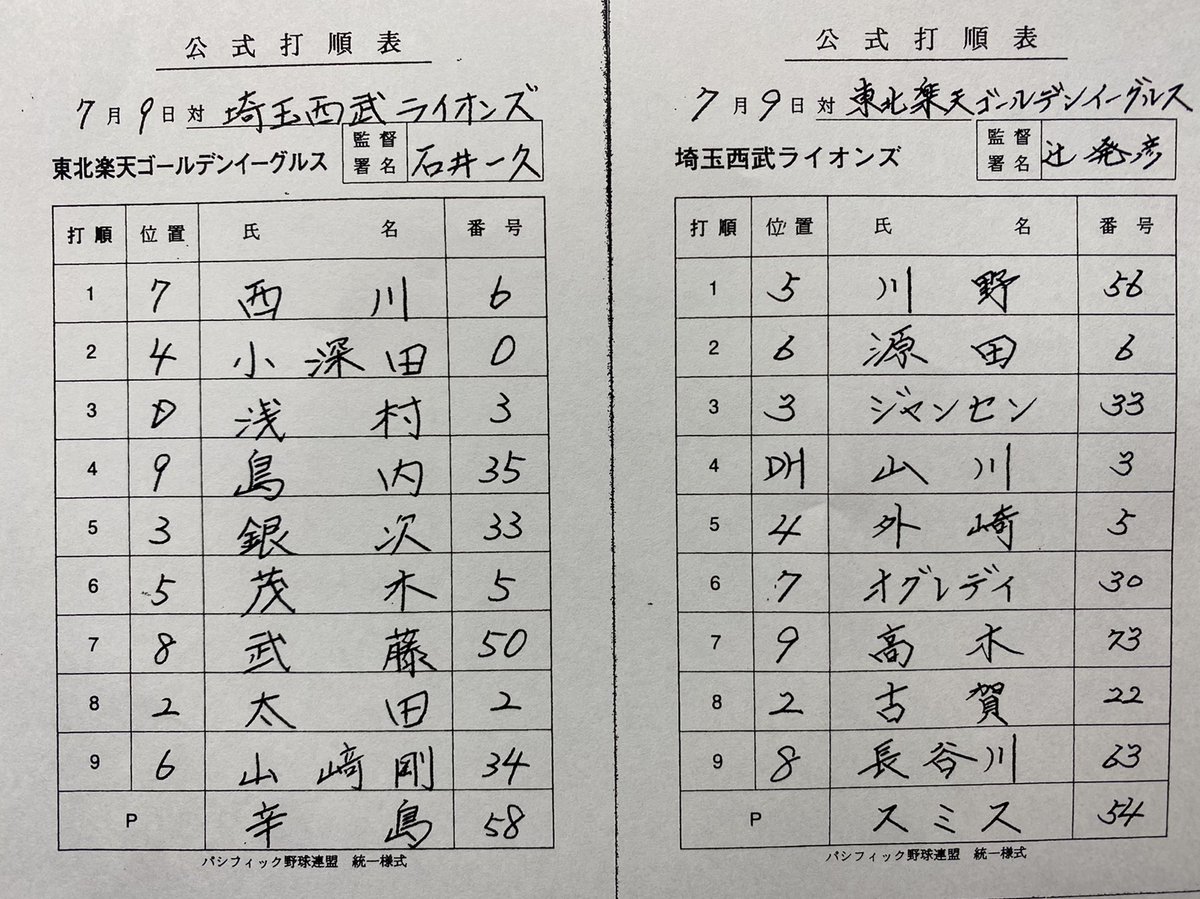 公式打順表
7月9日対 埼玉西武ライオンズ
東北楽天ゴールデンイーグルス 監督署名 石井一久
打順 位置 氏名 番号
1 7 西川 6
2 4 小深田 0
3 D 浅村 3
4 9 島内 35
5 3 銀次 33
6 5 茂木 5
7 8 武藤 50
8 2 太田 2
9 6 山﨑剛 34
P 辛島 58
パシフィック野球連盟 統一様式
公式打順表
7月9日対 東北楽天ゴールデンイーグルス
埼玉西武ライオンズ 監督署名 辻発彦
打順 位置 氏名 番号
1 5 川野 56
2 6 源田 6
3 3 ジャンセン 33
4 DH 山川 3
5 4 外崎 5
6 7 オグレディ 30
7 9 高木 73
8 2 古賀 22
9 8 長谷川 63
P スミス 54
パシフィック野球連盟 統一様式